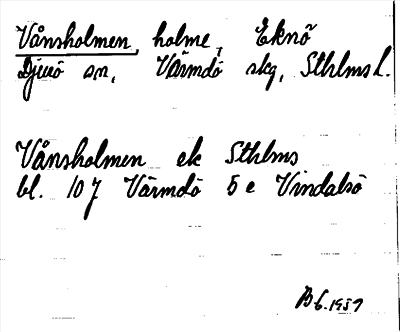 Vånsholmen, holme, Eknö
Djurö sn, Värmdö skg, Sthlms l.
Vånsholmen ek Sthlms
bl. 107 Värmdö 5 e Vindalsö
B6.1959